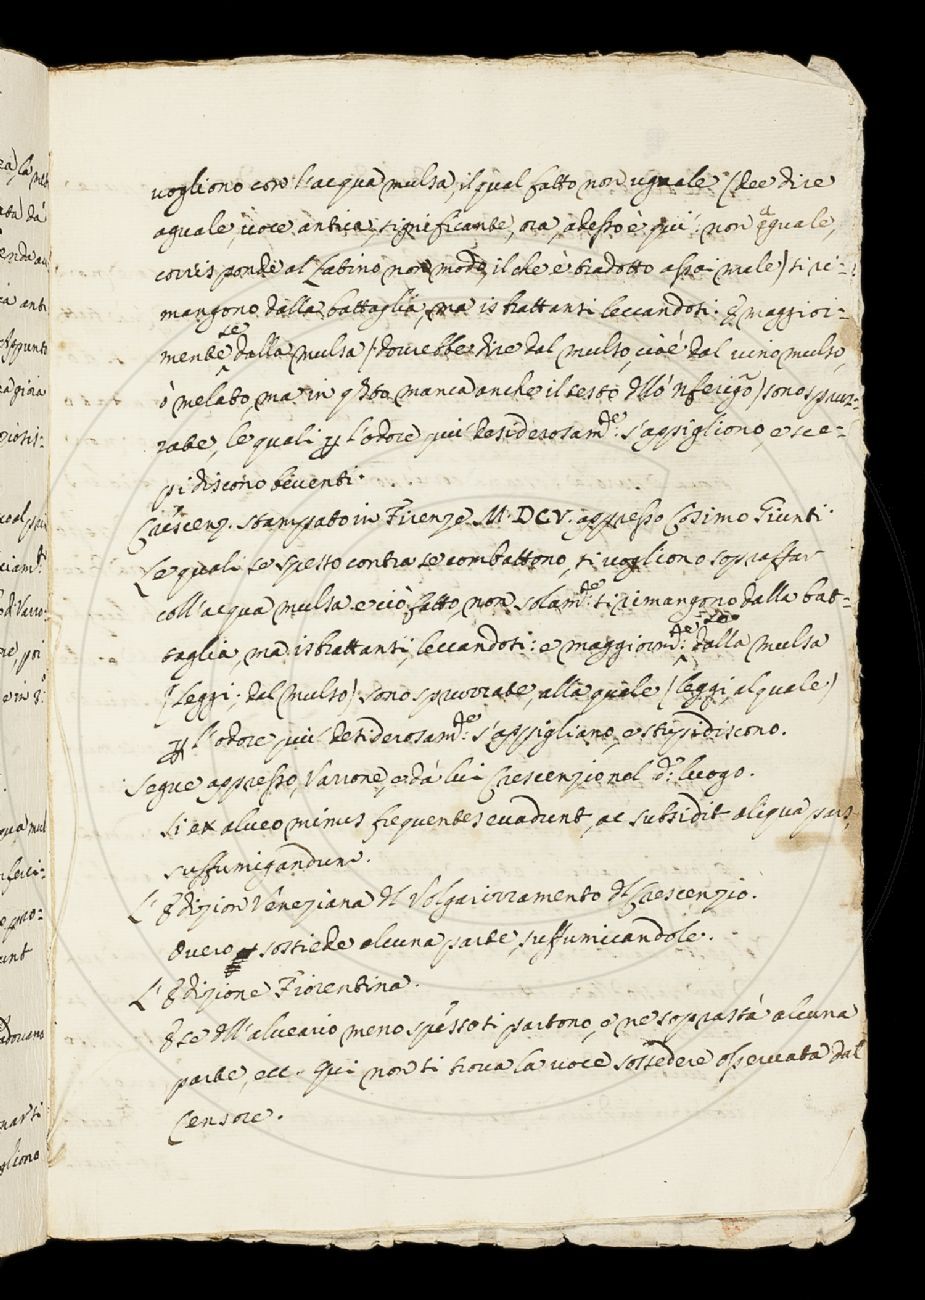 vogliono con l'acqua mulsa, il qual fatto non uguale (dee dire
aguale, voce antica, significante, ora, adesso è qui: non eguale,
corrisponde al Latino non modo, il che è tradotto assai male) si ri=
mangono dalla battaglia, ma isbrattansi leccandosi. E maggior=
mente se dalla mulsa (dovrebbe dire dal mulso, cioè dal vino mulso,
ò melato, ma in q.sto manca anche il testo dello 'nferig.o) sono spruz=
zate, le quali p l'odore più desiderosam.te s'appigliono, e ste=
pidiscono beventi.
Crescenz. stampato in Firenze M.DCV. appresso Cosimo Giunti
Le quali se spesso contra se combattono, si vogliono sopraffar
coll'acqua mulsa e ciò fatto, non solam.te si rimangono dalla bat=
taglia, ma isbrattansi, leccandosi: e maggiorm.te se dalla mulsa
(leggi. dal mulso) sono spruzzate, alla quale (leggi, al quale)
p l'odore più desiderosam.te s'appigliano, e stupidiscono.
Segue appresso, Varrone, e dà lui Crescenzio nel d.o luogo.
Si ex alveo minus frequentes evadunt, ac subsidit aliqua pars,
suffumigandum.
L'Edizion Veneziana dl Volgarizzamento dl Crescenzio.
Overo sostiede alcuna parte, suffumicandole.
L'Edizione Fiorentina.
E se dll'alveario meno spesso si partono, e ne soprastà alcuna
parte, ecc. Qui non si trova la voce sossedere osservata dal
Censore.